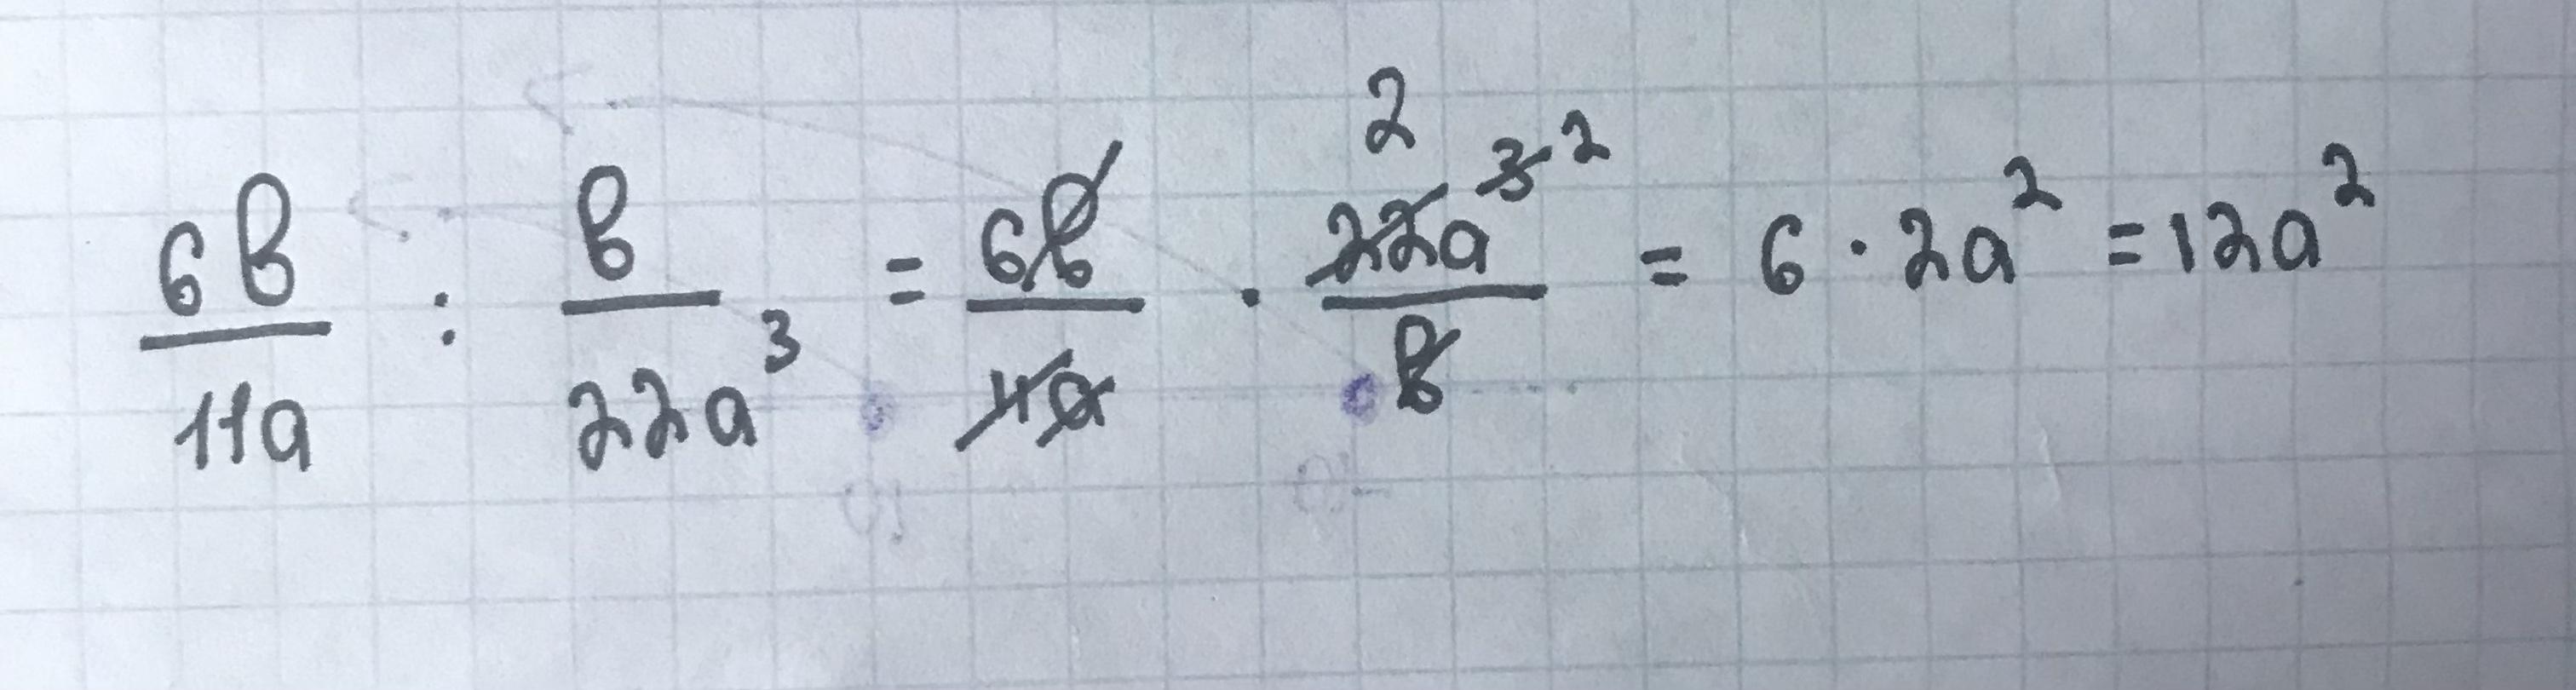 6в/11a : в/22a³ = 6в/11a · 22a³/в = 6 · 2a² = 12a²